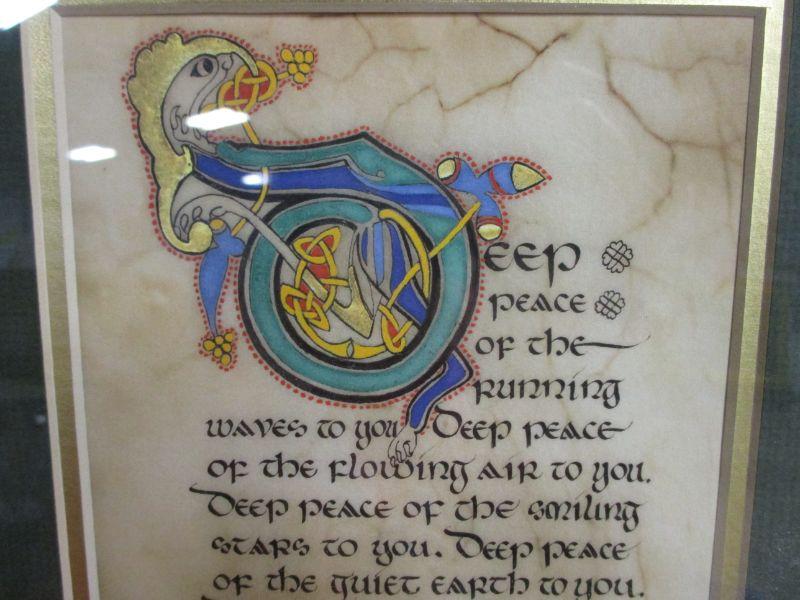 Deep
peace
of the
running
waves to you Deep peace
of the flowing air to you.
Deep peace of the smiling
stars to you. Deep peace
of the quiet earth to you.